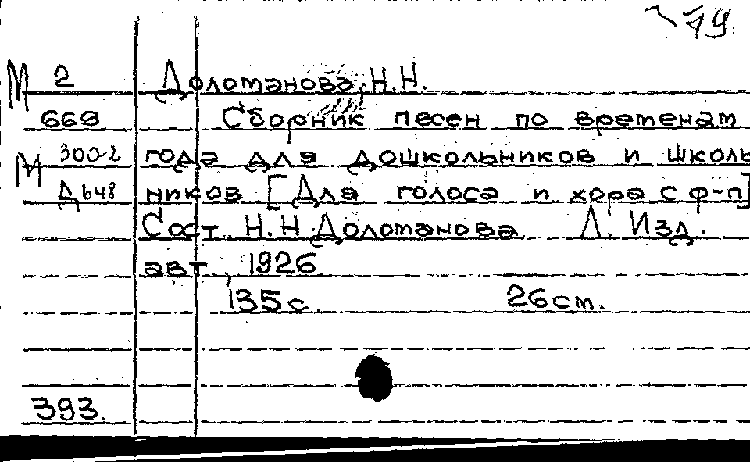 79
М 2 Доломанова, Н.Н.
669 Сборник песен по временам
М 300-2 года для дошкольников и школь
Д648 ников [Для голоса и хора с ф-п]
Сост. Н.Н. Доломанова Л. Изд.
авт. 1926
135 с. 26 см.
393.